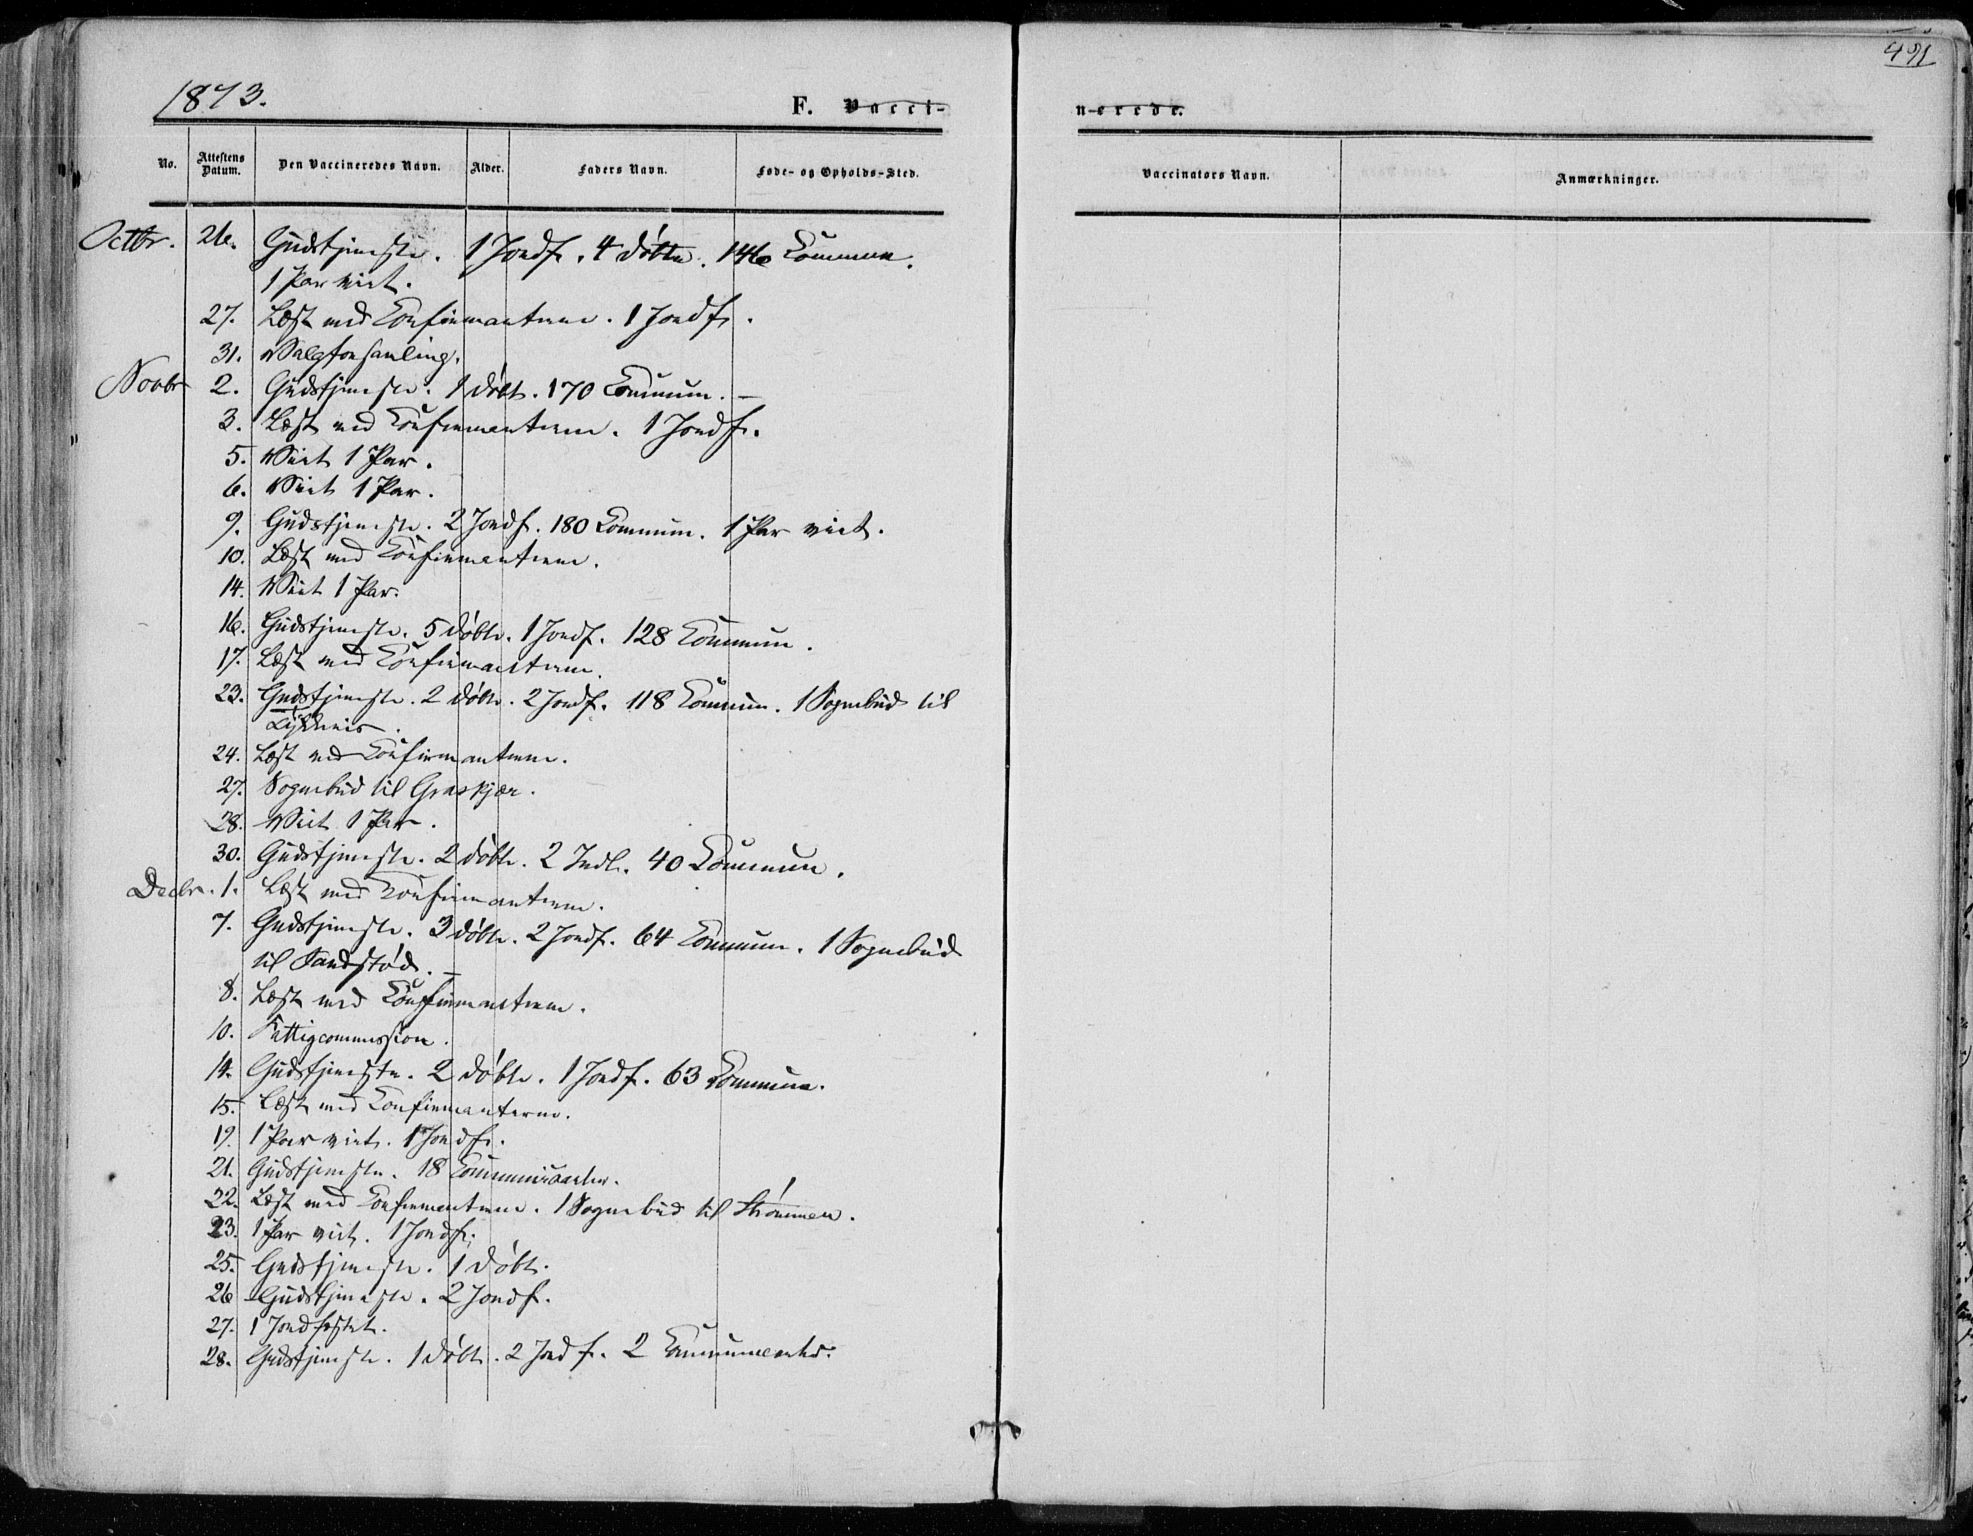 491
1873.
F. Vacci-
nerede.
No.
Attestens Datum.
Den Vaccineredes Navn.
Alder.
Faders Navn.
Føde- og Opholds-Sted.
Vaccinators Navn.
Anmærkninger.
Octbr. 26. Gudstjeneste. 1 Jordf. 4 døbte. 146 Commun.
1 Par viet.
27. Læst med Confirmanterne. 1 Jordf.
31. Valgforsamling.
Novbr 2. Gudstjeneste. 1 døbt. 170 Commun. –
3. Læst med Confirmanterne. 1 Jordf.
5. Viet 1 Par.
6. Viet 1 Par.
9. Gudstjeneste. 2 Jordf. 180 Commun. 1 Par viet.
10. Læst med Confirmanterne.
14. Viet 1 Par.
16. Gudstjeneste. 5 døbte. 1 Jordf. 128 Commun.
17. Læst med Confirmanterne.
23. Gudstjeneste. 2 døbte. 2 Jordf. 118 Commun. 1 Sognebud til
24. Læst med Confirmanterne.
27. Sognebud til Graskjær.
28. Viet 1 Par.
30. Gudstjeneste. 2 døbte. 2 Indl. 40 Commun.
Decbr. 1. Læst med Confirmanterne.
7. Gudstjeneste. 3 døbte. 2 Jordf. 64 Commun. 1 Sognebud
til Sandstød. –
8. Læst med Confirmanterne.
10. Fattigcommission.
14. Gudstjeneste. 2 døbte. 1 Jordf. 63 Commun.
15. Læst med Confirmanterne.
19. 1 Par viet. 1 Jordf.
21. Gudstjeneste. 18 Communicanter.
22. Læst med Confirmanterne. 1 Sognebud til Strömmen.
23. 1 Par viet. 1 Jordf.
25. Gudstjeneste. 1 døbt.
26 Gudstjeneste. 2 Jordf.
27. 1 Jordfæstet.
28. Gudstjeneste. 1 døbt. 2 Jordf. 2